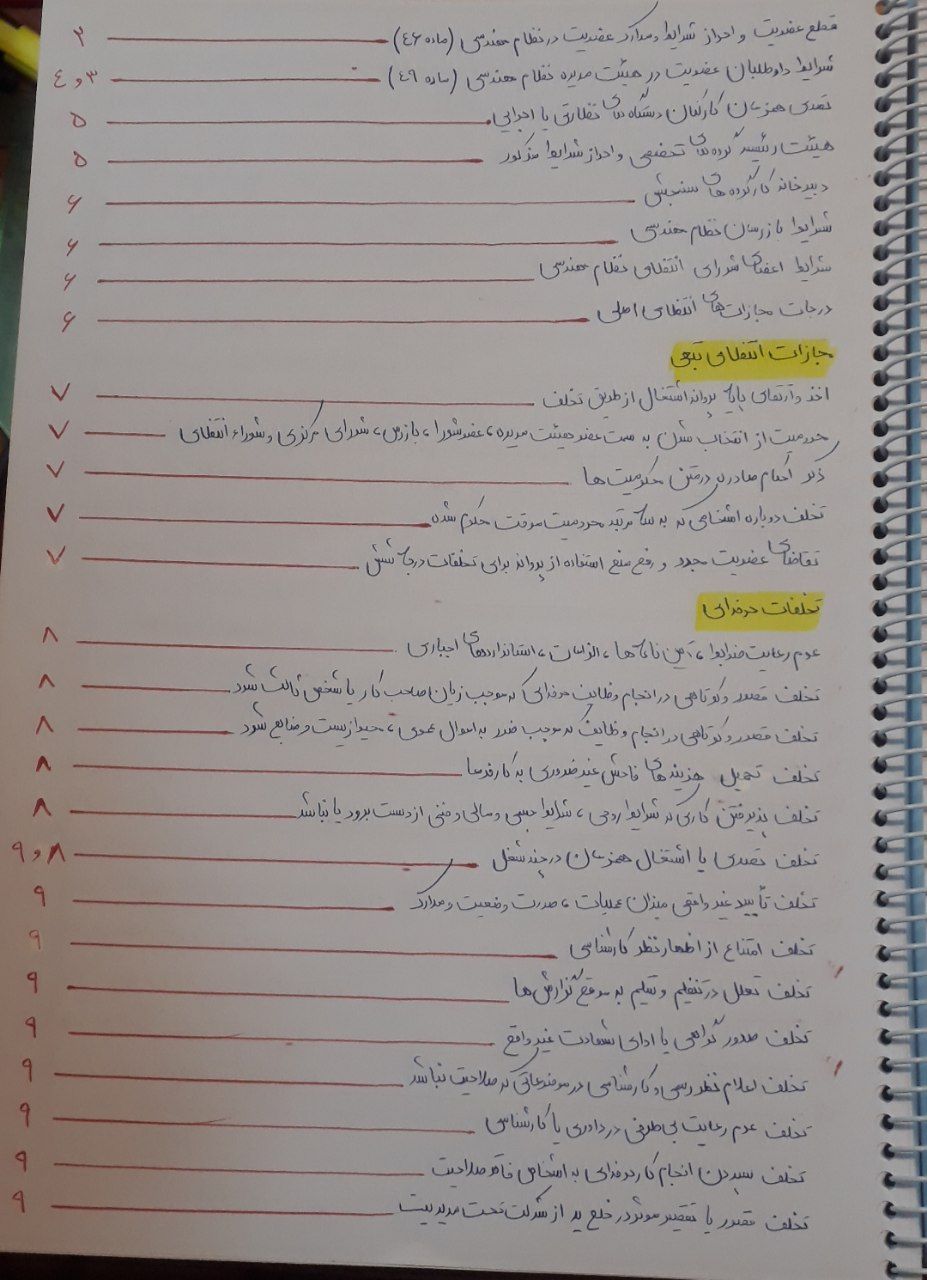 قطع عضویت و احراز شرایط و مدارک عضویت در نظام مهندسی (ماده ۴۶) ۲
شرایط داوطلبان عضویت در هیئت مدیره نظام مهندسی (ماده ۴۹) ۳ و ۴
تصدی همزمان کارکنان دستگاه های نظارتی یا اجرایی ۵
هیئت رئیسه گروه های تخصصی و احراز شرایط مذکور ۵
دبیرخانه کارگروه های سنجشی ۶
شرایط بازرسان نظام مهندسی ۶
شرایط اعضای شورای انتظامی نظام مهندسی ۶
درجات مجازات های انتظامی اصلی ۶
مجازات انتظامی تبعی
اخذ و ارتقای پایه پروانه اشتغال از طریق تخلف ۷
محرومیت از انتخاب شدن به سمت عضو هیئت مدیره، عضو شورا، بازرس، شورای مرکزی و شورا انتظامی ۷
ذکر احکام صادره در متن محکومیت ها ۷
تخلف دوباره اشخاصی که به سه مرتبه محرومیت موقت حکم شده ۷
تقاضای عضویت مجدد و رفع منع استفاده از پروانه برای تخلفات درجه شش ۷
تخلفات حرفه‌ای
عدم رعایت ضوابط، آیین نامه ها، الزامات، استانداردهای اجباری ۸
تخلف قصور و کوتاهی در انجام وظایف حرفه‌ای که موجب زیان صاحب کار یا شخص ثالث شود ۸
تخلف قصور و کوتاهی در انجام وظایف که موجب ضرر به اموال عمومی، محیط زیست و منابع شود ۸
تخلف تحمیل هزینه های فاحش غیر ضروری به کارفرما ۸
تخلف پذیرفتن کاری که شرایط روحی، شرایط جسمی و مالی و فنی از دست برود یا نباشد ۸
تخلف تصدی یا اشتغال همزمان در چند شغل ۸ و ۹
تخلف تأیید غیر واقعی میزان عملیات، صورت وضعیت و مدارک ۹
تخلف امتناع از اظهار نظر کارشناسی ۹
تخلف تعلل در تنظیم و تسلیم به موقع گزارش ها ۹
تخلف صدور گواهی یا ادای شهادت غیر واقع ۹
تخلف اعلام نظر رسمی و کارشناسی در موضوعاتی که صلاحیت نباشد ۹
تخلف عدم رعایت بی طرفی در داوری یا کارشناسی ۹
تخلف سپردن انجام کار حرفه‌ای به اشخاص فاقد صلاحیت ۹
تخلف قصور یا تقصیر موثر در خلع ید از شرکت تحت مدیریت ۹